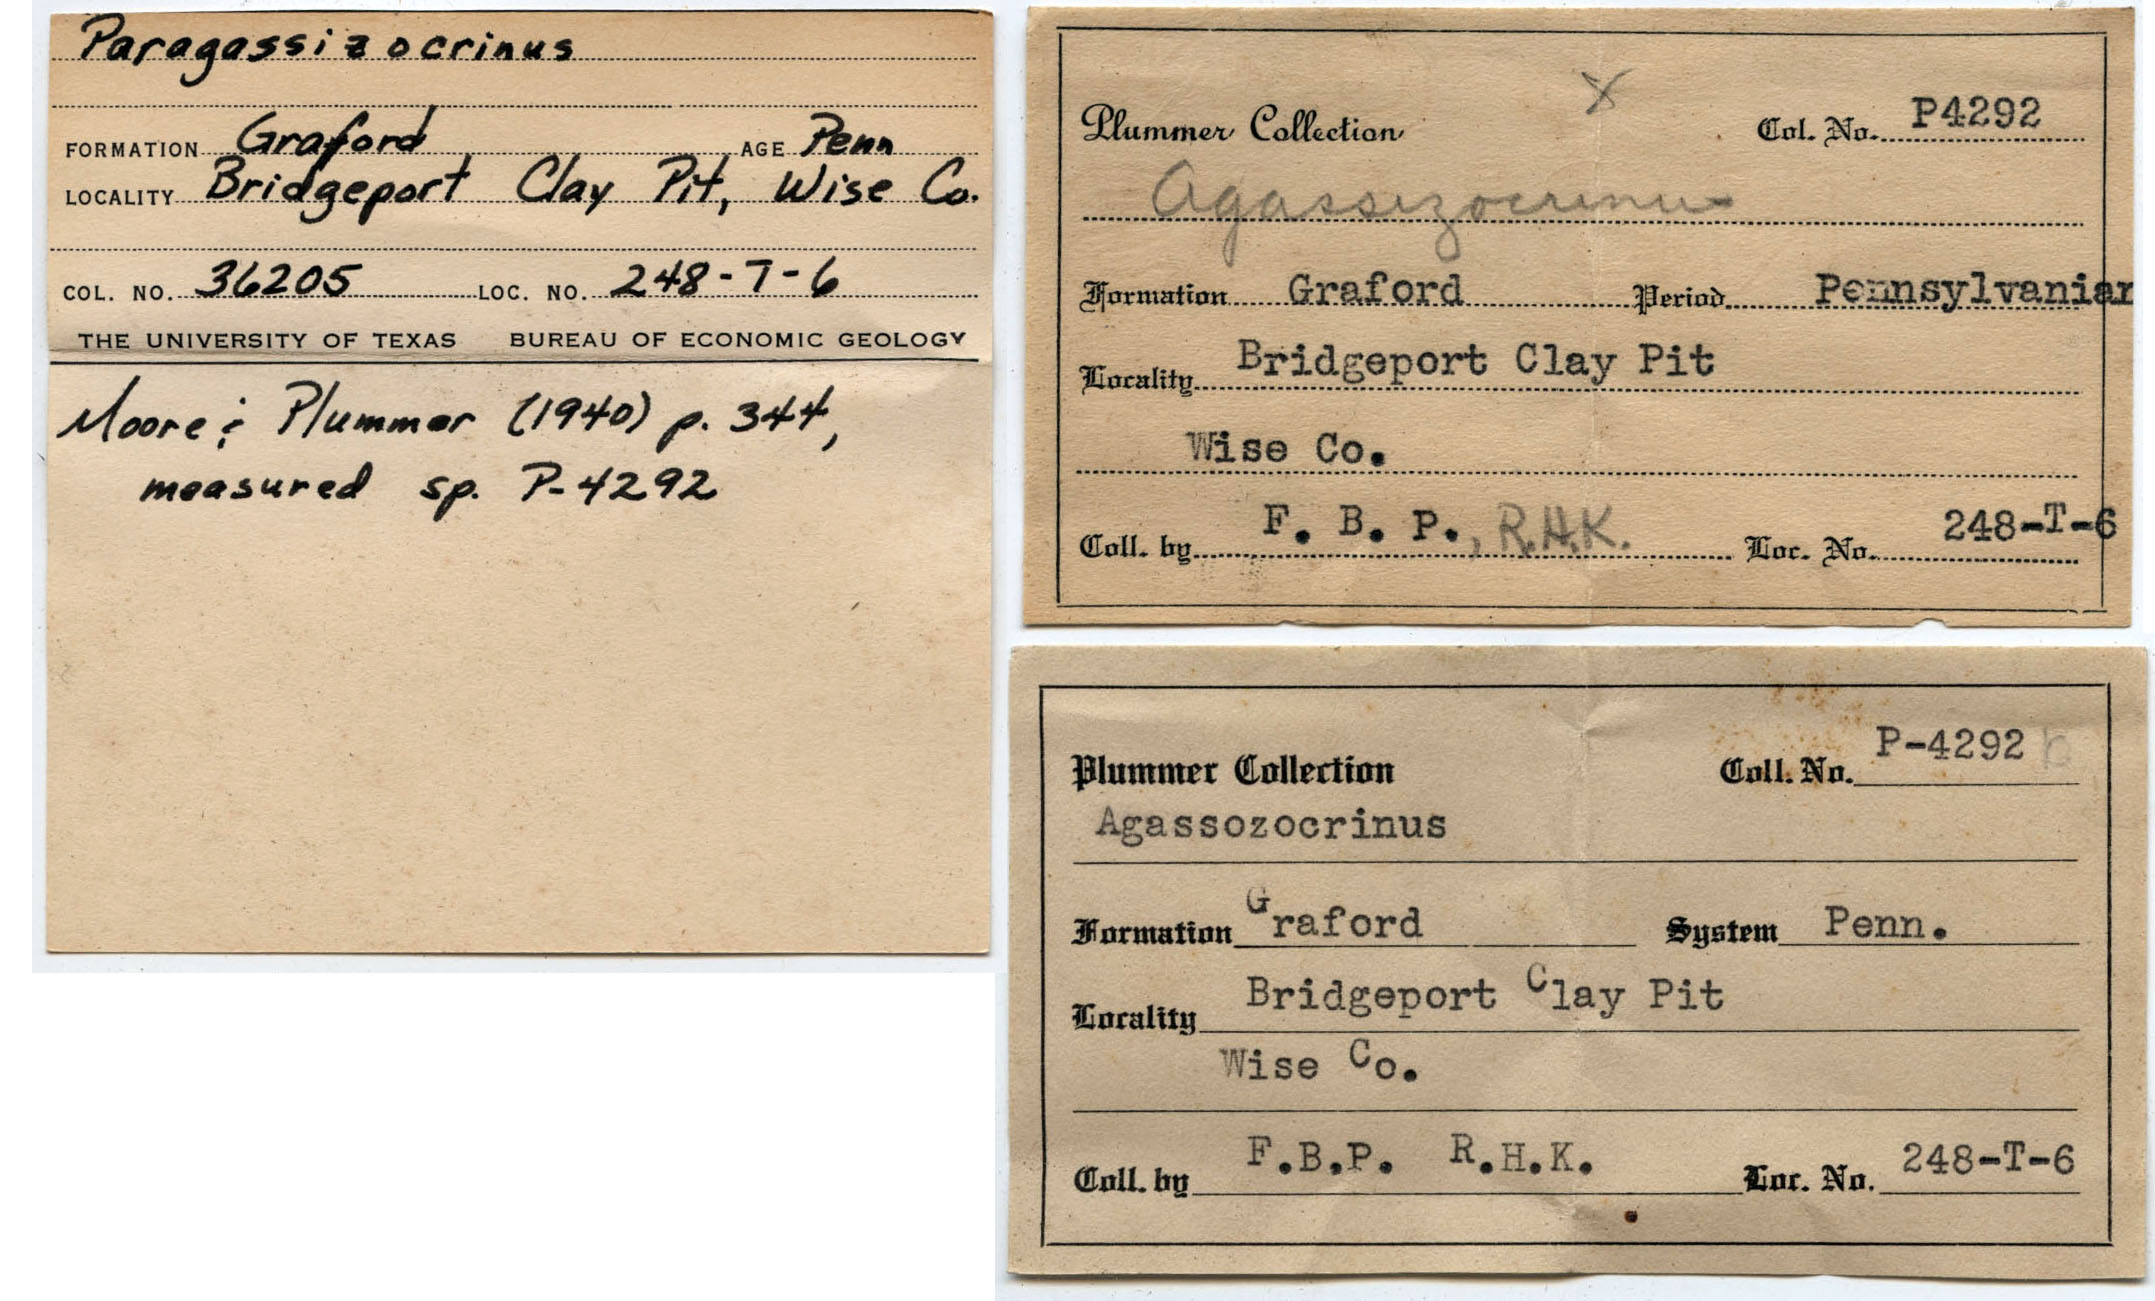 Paragassizocrinus
FORMATION Graford AGE Penn
LOCALITY Bridgeport Clay Pit, Wise Co.
COL. NO. 36205 LOC. NO. 248-T-6
THE UNIVERSITY OF TEXAS BUREAU OF ECONOMIC GEOLOGY
Moore & Plummer (1940) p. 344,
measured sp. P-4292
X
Plummer Collection Col. No. P4292
Agassizocrinus
Formation Graford Period Pennsylvanian
Locality Bridgeport Clay Pit
Wise Co.
Coll. by F. B. P., R.H.K. Loc. No. 248-T-6
Plummer Collection Coll. No. P-4292 b
Agassozocrinus
Formation Graford System Penn.
Locality Bridgeport Clay Pit
Wise Co.
Coll. by F.B.P. R.H.K. Loc. No. 248-T-6